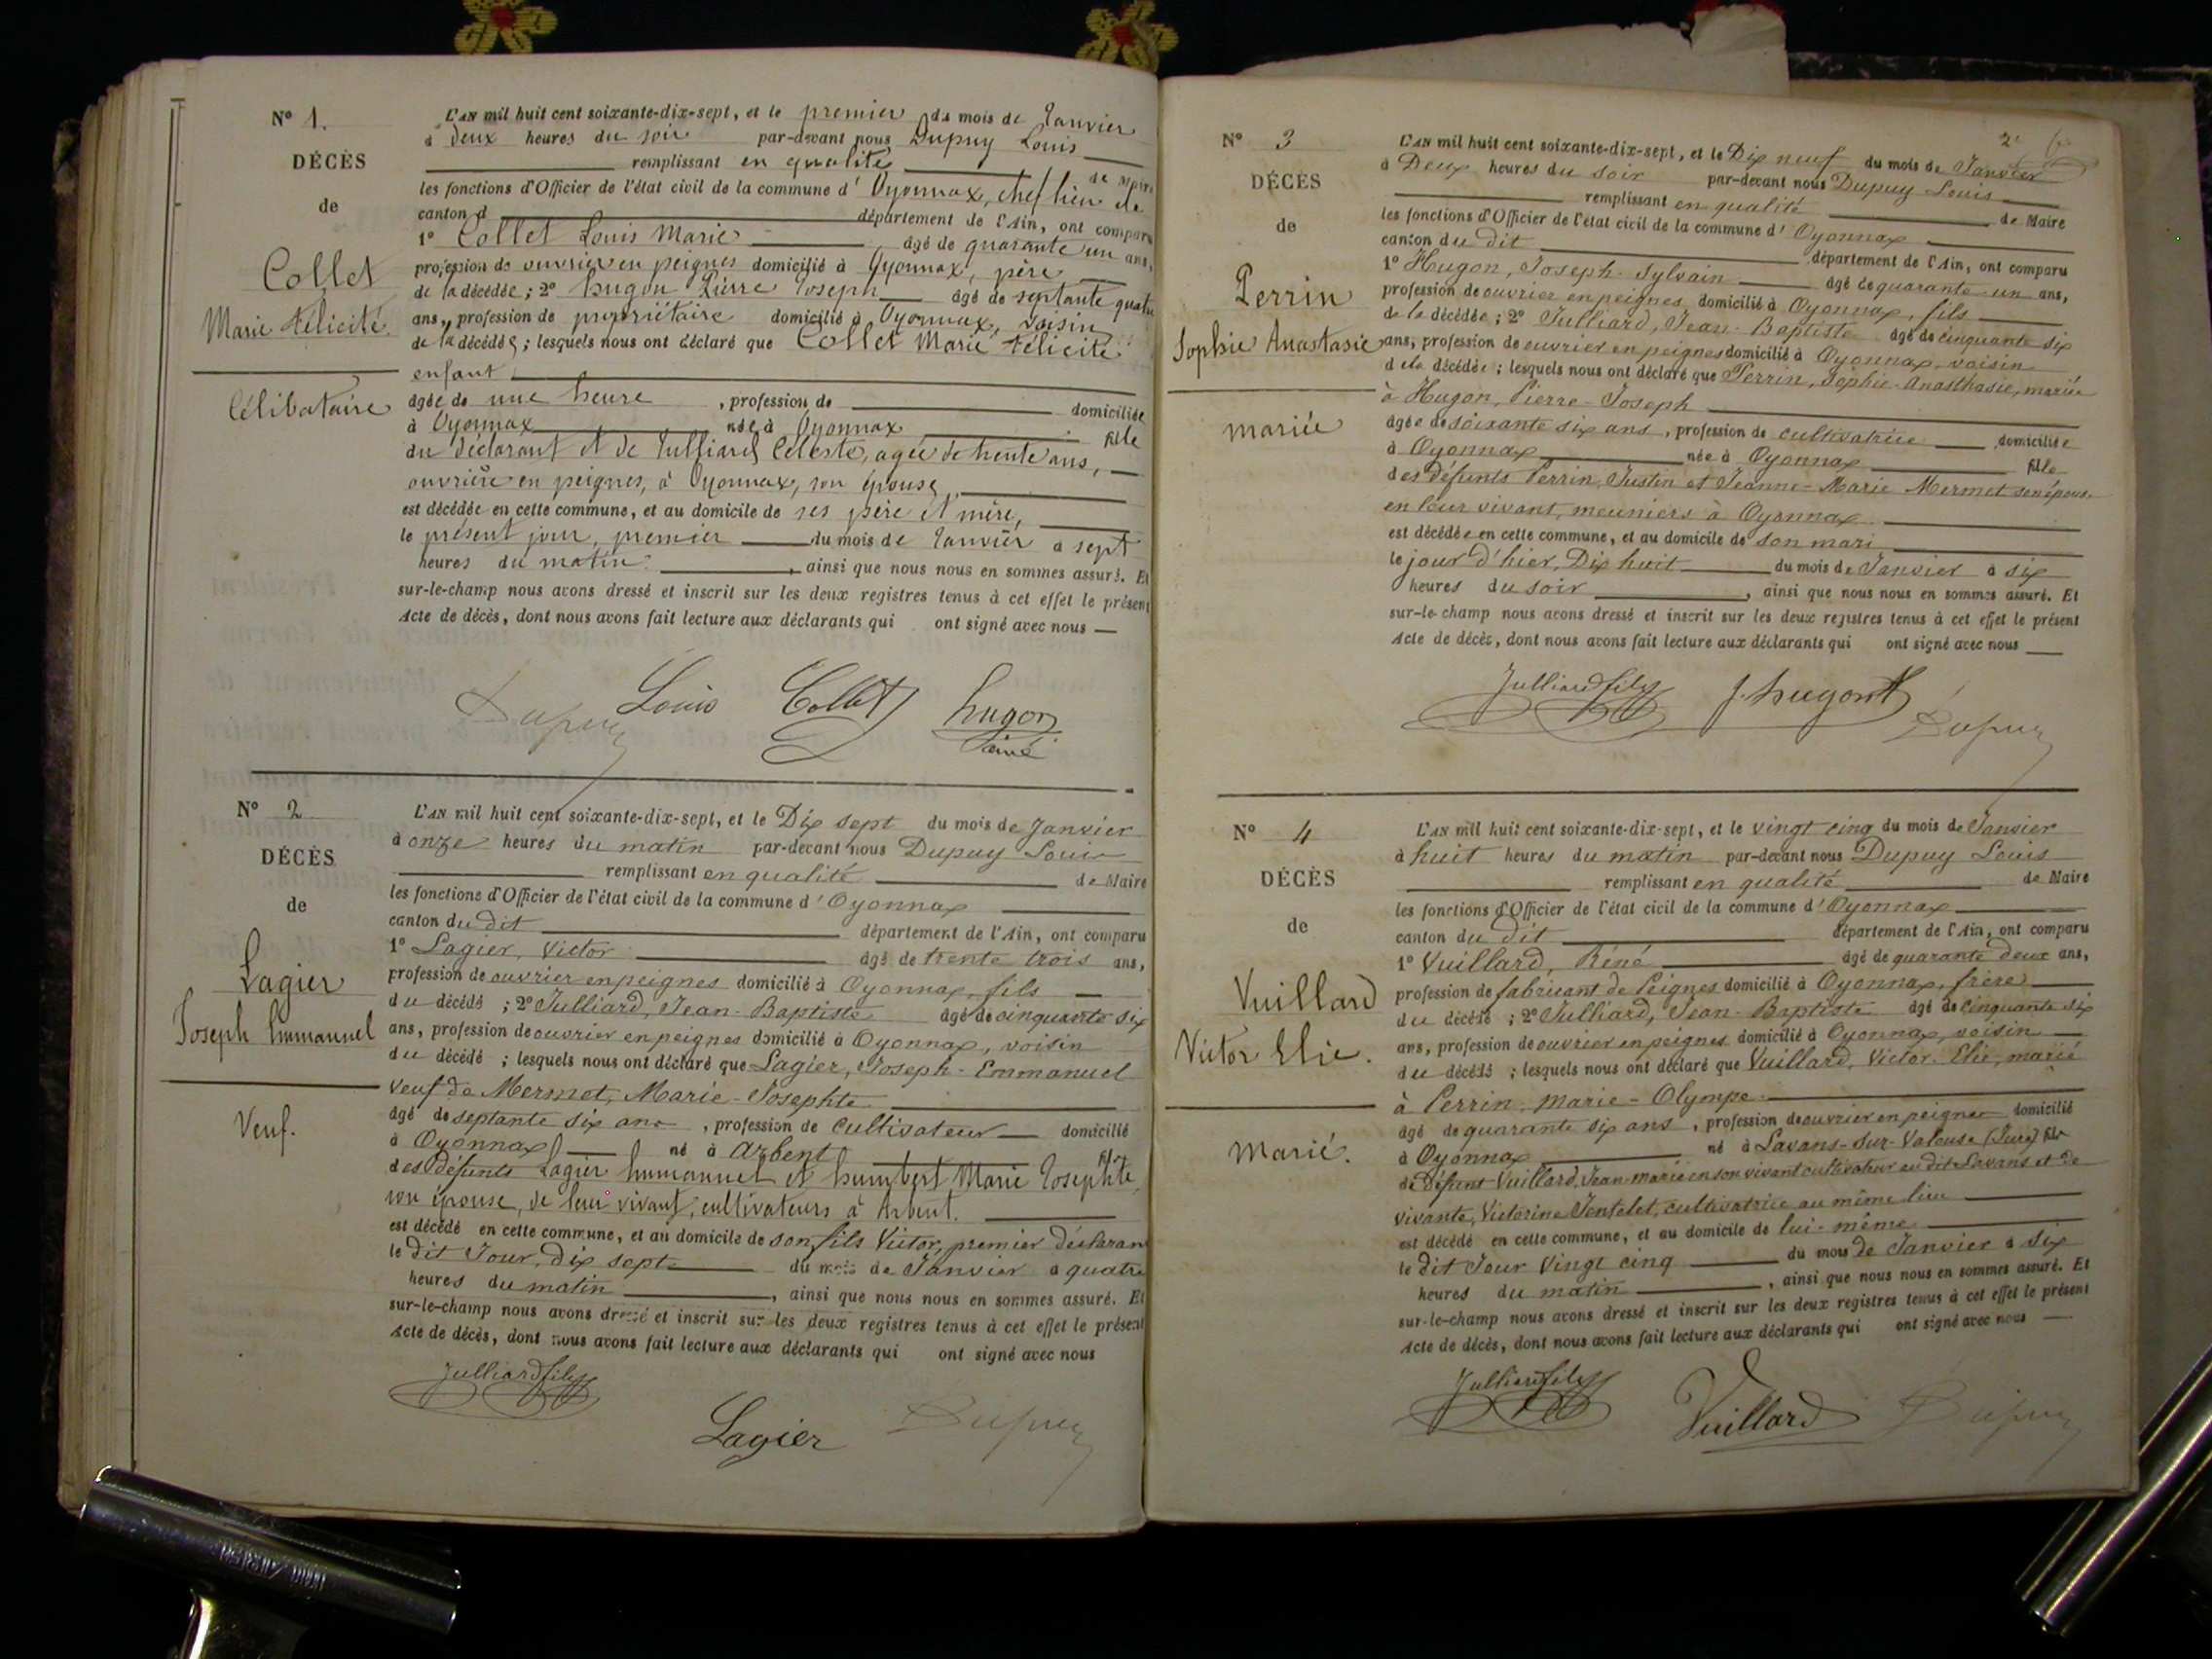 N° 1.
DÉCÈS
de
Collet
Marie Félicité
Célibataire
L'AN mil huit cent soixante-dix-sept, et le premier du mois de Janvier
à deux heures du soir par-devant nous Dupuy Louis
remplissant en qualité de Maire
les fonctions d'Officier de l'état civil de la commune d'Oyonnax, chef lieu de
canton d département de l'Ain, ont comparu
1° Collet Louis Marie âgé de quarante un ans,
profession de ouvrier en peignes domicilié à Oyonnax, père
de la décédée; 2° hugon Pierre Joseph âgé de septante quatre
ans, profession de propriétaire domicilié à Oyonnax, voisin
de la décédée; lesquels nous ont déclaré que Collet Marie Félicité
enfant
âgée de une heure, profession de domiciliée
à Oyonnax née à Oyonnax fille
du déclarant et de Julliard Céleste, agée de trente ans,
ouvrière en peignes, à Oyonnax, son épouse,
est décédée en cette commune, et au domicile de ses père et mère,
le présent jour, premier du mois de Janvier à sept
heures du matin, ainsi que nous nous en sommes assuré. Et
sur-le-champ nous avons dressé et inscrit sur les deux registres tenus à cet effet le présent
Acte de décès, dont nous avons fait lecture aux déclarants qui ont signé avec nous
Dupuy Louis Collet hugon
l'ainé
N° 2
DÉCÈS
de
Lagier
Joseph Emmanuel
Veuf.
L'AN mil huit cent soixante-dix-sept, et le Dix sept du mois de Janvier
à onze heures du matin par-devant nous Dupuy Louis
remplissant en qualité de Maire
les fonctions d'Officier de l'état civil de la commune d'Oyonnax
canton du dit département de l'Ain, ont comparu
1° Lagier, Victor âgé de trente trois ans,
profession de ouvrier en peignes domicilié à Oyonnax, fils
du décédé; 2° Julliard, Jean-Baptiste âgé de cinquante six
ans, profession de ouvrier en peignes domicilié à Oyonnax, voisin
du décédé; lesquels nous ont déclaré que Lagier, Joseph-Emmanuel
Veuf de Mermet, Marie-Josephte
âgé de septante six ans, profession de Cultivateur domicilié
à Oyonnax né à Arbent fils
des défunts Lagier Emmanuel et humbert Marie Josephte,
son épouse, de leur vivant, cultivateurs à Arbent.
est décédé en cette commune, et au domicile de son fils Victor, premier déclarant
le dit Jour, dix sept du mois de Janvier à quatre
heures du matin, ainsi que nous nous en sommes assuré. Et
sur-le-champ nous avons dressé et inscrit sur les deux registres tenus à cet effet le présent
Acte de décès, dont nous avons fait lecture aux déclarants qui ont signé avec nous
Julliard fils
Lagier Dupuy
2
N° 3
DÉCÈS
de
Perrin
Sophie Anastasie
mariée
L'AN mil huit cent soixante-dix-sept, et le Dix neuf du mois de Janvier
à Deux heures du soir par-devant nous Dupuy Louis
remplissant en qualité de Maire
les fonctions d'Officier de l'état civil de la commune d'Oyonnax
canton du dit département de l'Ain, ont comparu
1° Hugon, Joseph-Sylvain âgé de quarante-un ans,
profession de ouvrier en peignes domicilié à Oyonnax, fils
de la décédée; 2° Julliard, Jean-Baptiste âgé de cinquante six
ans, profession de ouvrier en peignes domicilié à Oyonnax, voisin
de la décédée; lesquels nous ont déclaré que Perrin, Sophie-Anasthasie, mariée
à Hugon, Pierre-Joseph
âgée de soixante six ans, profession de cultivatrice domiciliée
à Oyonnax née à Oyonnax fille
des défunts Perrin, Justin et Jeanne-Marie Mermet son épouse,
en leur vivant, meuniers à Oyonnax
est décédée en cette commune, et au domicile de son mari
le jour d'hier, Dix huit du mois de Janvier à six
heures du soir, ainsi que nous nous en sommes assuré. Et
sur-le-champ nous avons dressé et inscrit sur les deux registres tenus à cet effet le présent
Acte de décès, dont nous avons fait lecture aux déclarants qui ont signé avec nous
Julliard fils J. hugon Dupuy
N° 4
DÉCÈS
de
Vuillard
Victor Elie.
Marié.
L'AN mil huit cent soixante-dix-sept, et le vingt cinq du mois de Janvier
à huit heures du matin par-devant nous Dupuy Louis
remplissant en qualité de Maire
les fonctions d'Officier de l'état civil de la commune d'Oyonnax
canton du dit département de l'Ain, ont comparu
1° Vuillard, Réné âgé de quarante deux ans,
profession de fabricant de Peignes domicilié à Oyonnax, frère
du décédé; 2° Julliard, Jean-Baptiste âgé de cinquante six
ans, profession de ouvrier en peignes domicilié à Oyonnax, voisin
du décédé; lesquels nous ont déclaré que Vuillard, Victor-Elie, marié
à Perrin, Marie-Olympe
âgé de quarante six ans, profession de ouvrier en peignes domicilié
à Oyonnax né à Lavans-sur-Valouse (Jura) fils
de défunt Vuillard, Jean-marie en son vivant cultivateur au dit Lavans et de
vivante, Victorine Jentelet, cultivatrice au même lieu
est décédé en cette commune, et au domicile de lui-même
le dit Jour Vingt cinq du mois de Janvier à six
heures du matin, ainsi que nous nous en sommes assuré. Et
sur-le-champ nous avons dressé et inscrit sur les deux registres tenus à cet effet le présent
Acte de décès, dont nous avons fait lecture aux déclarants qui ont signé avec nous
Julliard fils Vuillard Dupuy